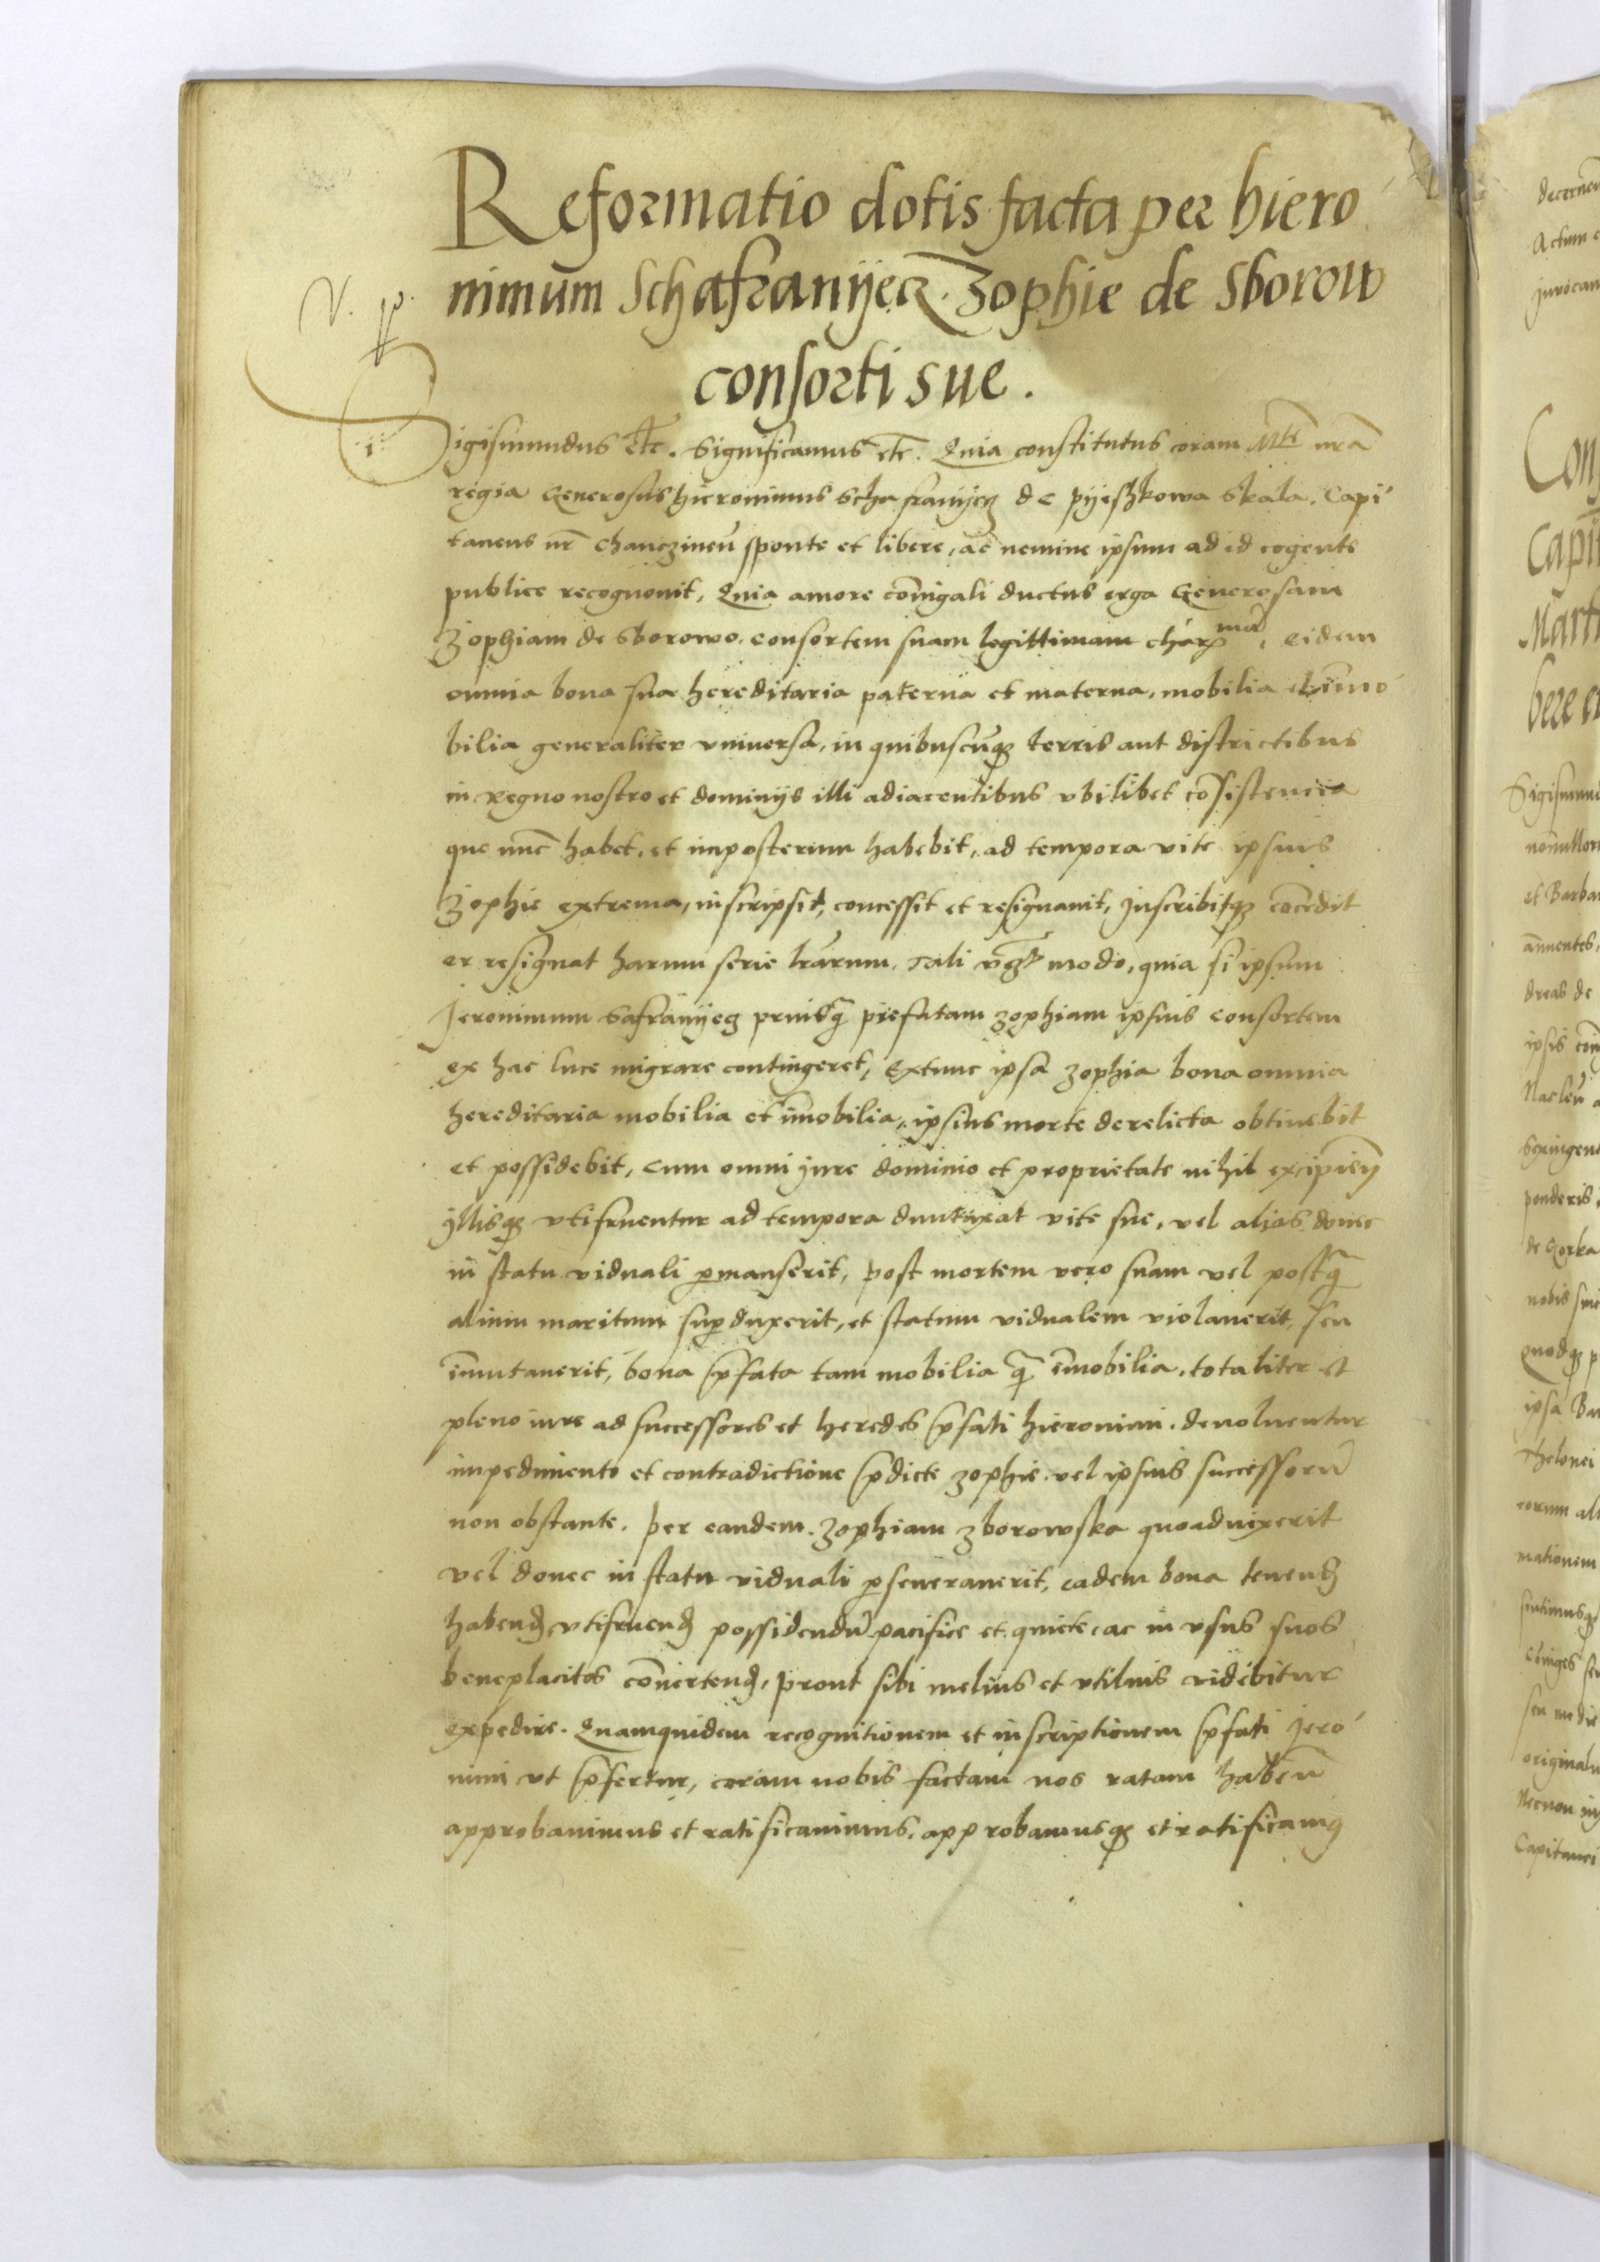 Reformatio dotis facta per hiero
nimum Schafranijecz. Zophie de Sborow
consorti sue.
V.
Sigismundus etc. Significamus etc. Quia constitutus coram Mte nrã
regia Generosus hieronimus Schafranijecz de pijeszkowa Skala. Capi
taneus nr̃ Chanczineñ sponte et libere, ac nemine ipsum ad id cogente
publice recognouit, Quia amore cõiugali ductus erga Generosam
Zophiam de Sborowo. consortem suam legittimam charma, eidem
omnia bona sua hereditaria paterna et materna, mobilia et im̃o
bilia generaliter vniuersa, in quibuscũqz terris aut districtibus
in Regno nostro et dominijs illi adiacentibus vbilibet cõsistencia
que nũc habet, et imposterum habebit, ad tempora vite ipsius
Zophie extrema, inscripsit, concessit et resignauit, Inscribitqz cõcedit
et resignat harum serie lr̃arum. Tali modo, quia si ipsum
Jeronimum Safranijecz priusq̃ prefatam Zophiam ipsius consortem
ex hac luce migrare contingeret, Extunc ipsa Zophia bona omnia
hereditaria mobilia et im̃obilia, ipsius morte derelicta obtinebit
et possidebit, cum omni iure dominio et proprietate nihil excipieñ
Illisqz vtifruentur ad tempora duntaxat vite sue, vel alias donec
in statu viduali p̱manserit, post mortem vero suam vel postq̃
alium maritum sup̱duxerit, et statum vidualem violauerit seu
im̃utauerit, bona p̃fata tam mobilia q̃ im̃obilia. totaliter et
pleno iure ad successores et heredes p̃fati hieronimi. deuoluentur
impedimento et contradictione p̃dicte Zophie. vel ipsius successorũ
non obstante. per eandem. Zophiam Zborowska quoaduixerit
vel donec in statu viduali p̱seuerauerit, eadem bona tenend̃
habend̃ vtifruend̃ possidendũ pacifice et quiete, ac in vsus suos
beneplacitos cõuertend̃, prout sibi melius et vtilius videbitur
expedire. Quamquidem recognitionem et inscriptionem p̃fati Jero
nimi vt p̃fertur, coram nobis factam nos ratam habeñ
approbauimus et ratificauimus, approbamusqz et ratificamus
Capit
Mart
Barbar
dreas de
ponderis
ipsa Bar
Thelonei
mationem
Capitanei